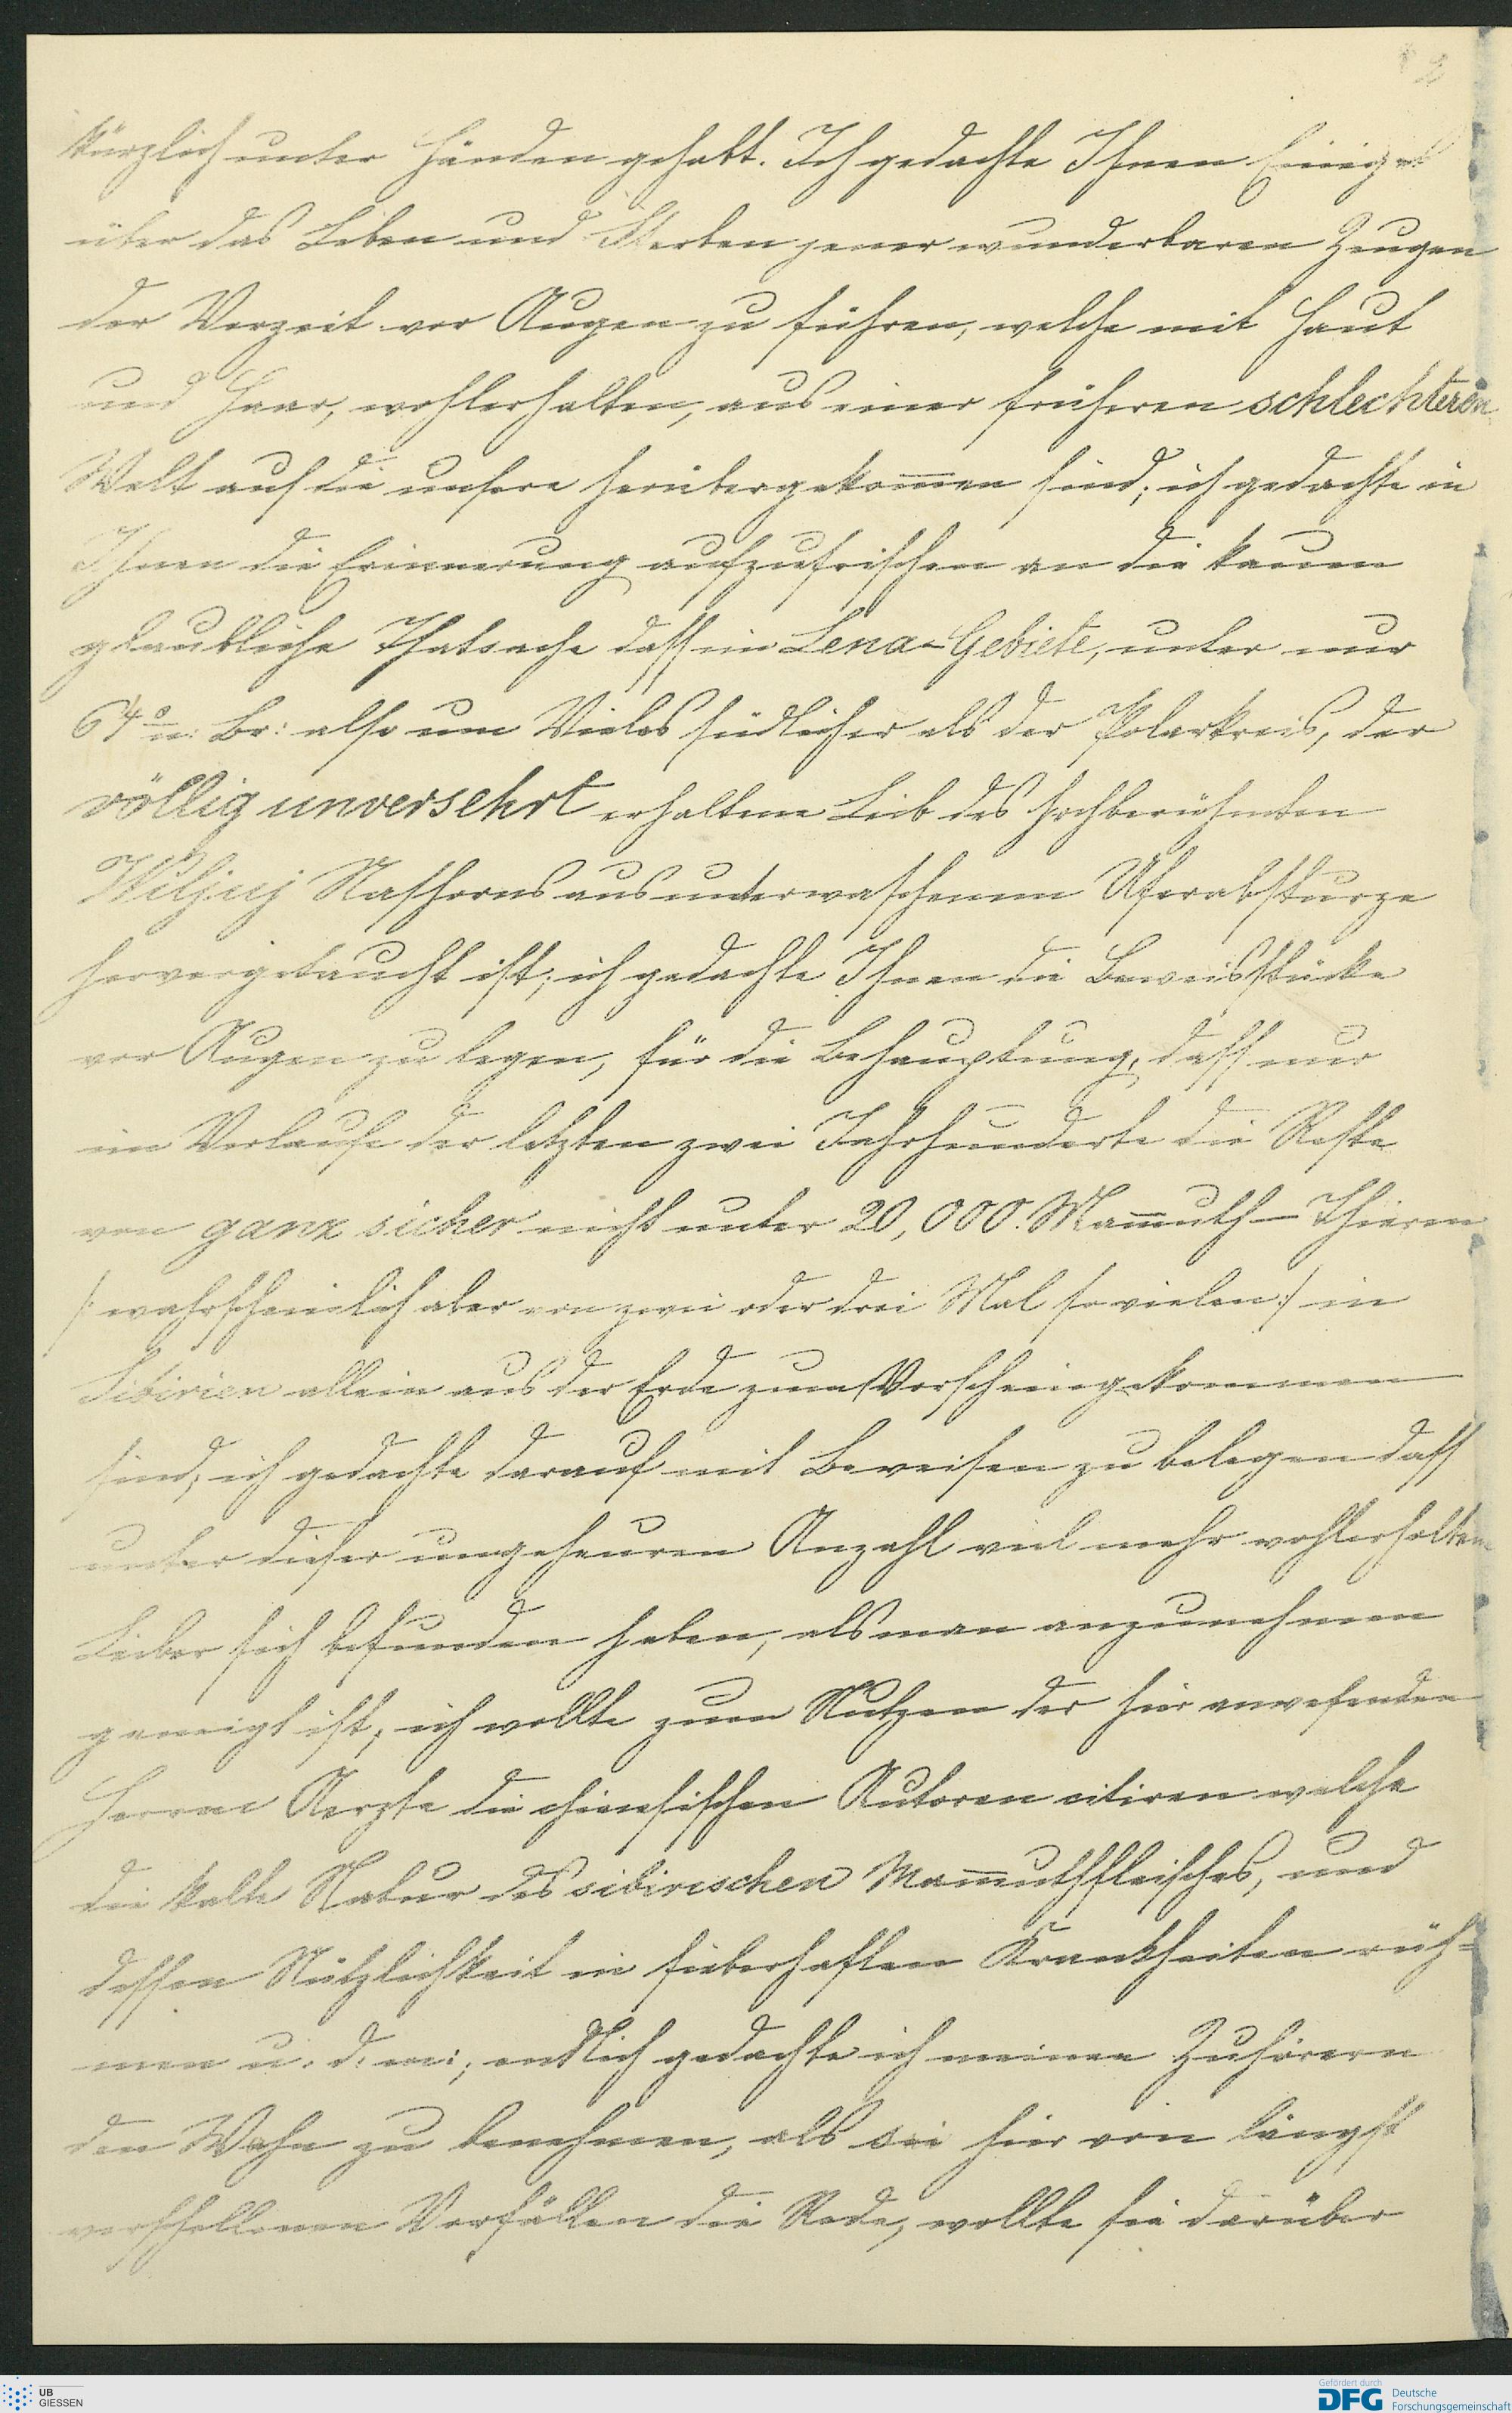 2
kürzlich unter Händen gehabt. Ich gedachte Ihnen Einiges
über das Leben und Sterben jener wunderbaren Zeugen
der Vorzeit vor Augen zu führen, welche mit Haut
und Haar, wohlerhalten, aus einer früheren schlechteren
Welt auf die unsere herübergekom̅en sind; ich gedachte in
Ihnen die Erinnerung aufzufrischen an die kaum
glaubliche Thatsache dass im Lena-Gebiete, unter nur
64° n: Br: also um Vieles südlicher als der Polarkreis, der
völlig unversehrt erhaltene Leib des hochberühmten
Wiljuj Nashorns aus unterwaschenem Uferabsturze
hervorgetaucht ist; ich gedachte Ihnen die Beweisstücke
vor Augen zu legen, für die Behauptung, dass nur
im Verlaufe der letzten zwei Jahrhunderte die Reste
von ganz sicher nicht unter 20,000. Mam̅uth-Thieren
/: wahrscheinlich aber von zwei oder drei Mal so vielen :/ in
Sibirien allein aus der Erde zum Vorschein gekommen
sind; ich gedachte darauf mit Beweisen zu belegen dass
unter dieser ungeheuren Anzahl viel mehr wohlerhaltene
Leiber sich befunden haben, als man anzunehmen
geneigt ist; ich wollte zum Nutzen der hier anwesenden
Herren Aerzte die chinesischen Autoren citiren welche
die kalte Natur des sibirischen Mam̅uthfleisches, und
dessen Nützlichkeit in fieberhaften Krankheiten rüh=
men u. d. m:; endlich gedachte ich meinen Zuhörern
den Wahn zu benehmen, als sei hier von längst
verschollenen Vorfällen die Rede, wollte sie darüber
UB
GIESSEN
Gefördert durch
DFG
Deutsche
Forschungsgemeinschaft